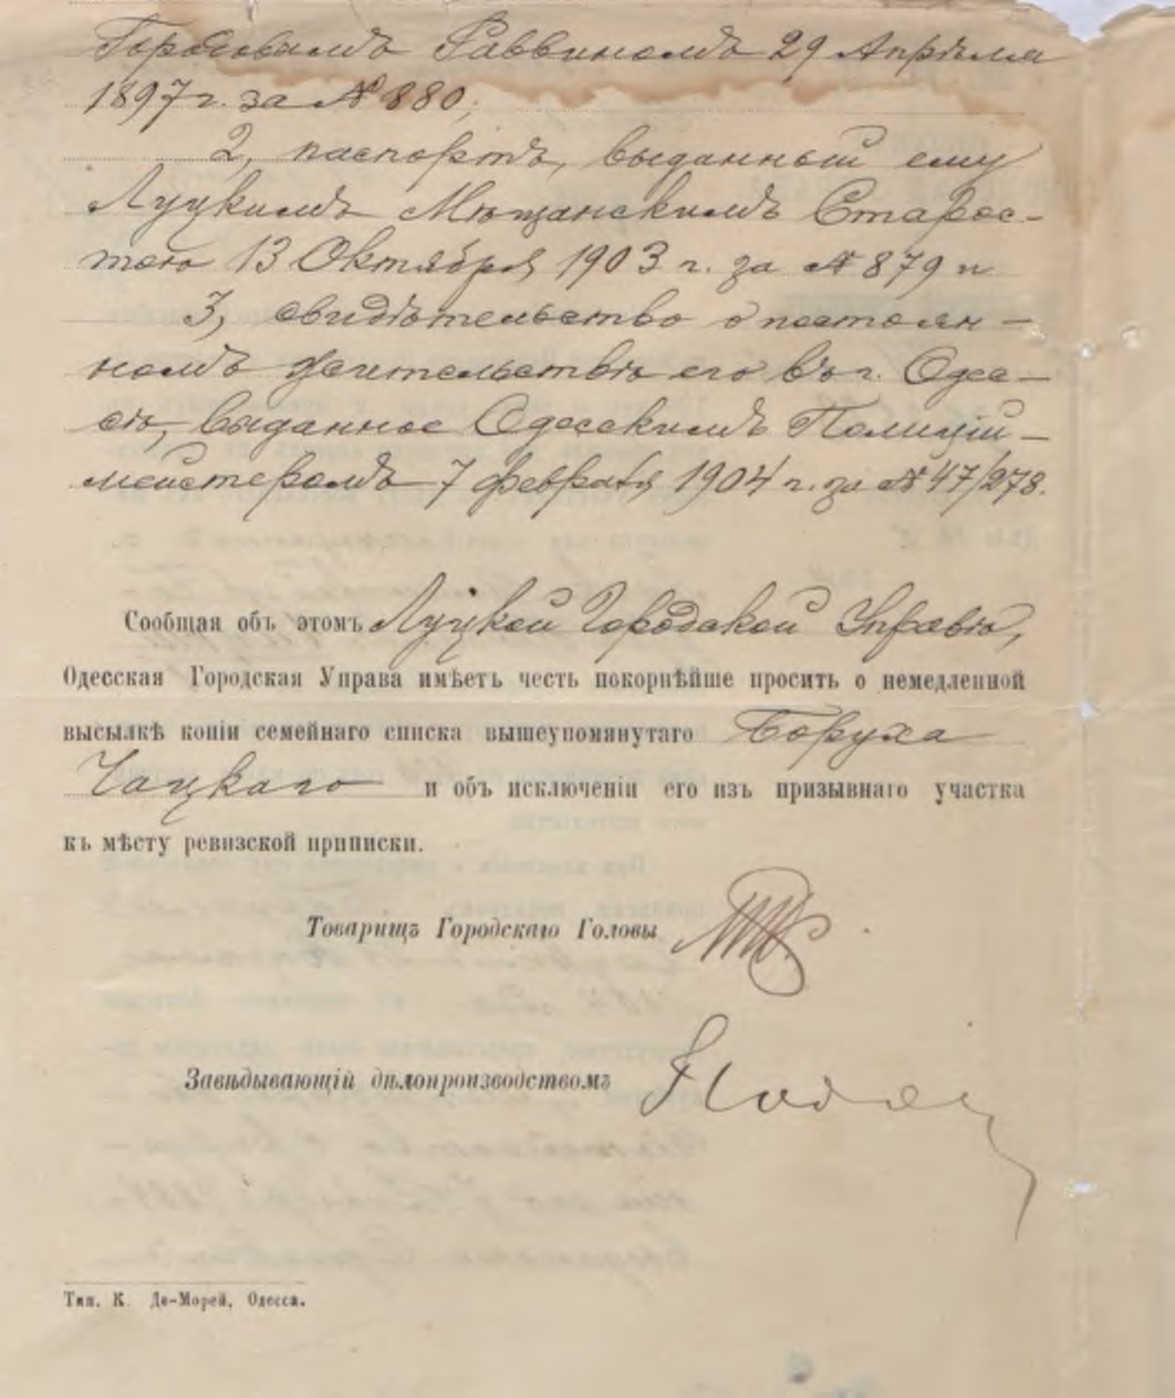 Городовымъ Раввиномъ 29 Апрѣля
1897 г. за № 880;
2, паспортъ, выданный ему
Луцкимъ Мѣщанскимъ Старос-
тою 13 Октября 1903 г. за № 879 и
3, свидѣтельство о постоян-
номъ жительствѣ его въ г. Одес-
сѣ, выданное Одесскимъ Полицій-
мейстеромъ 7 февраля 1904 г. за № 47/278.
Сообщая объ этомъ Луцкой Городской Управѣ,
Одесская Городская Управа имѣетъ честь покорнѣйше просить о немедленной
высылкѣ копіи семейнаго списка вышеупомянутаго Боруха
Чацкаго и объ исключеніи его изъ призывнаго участка
къ мѣсту ревизской приписки.
Товарищъ Городскаго Головы
Завѣдывающій дѣлопроизводствомъ
Тип. К. Де-Морей, Одесса.